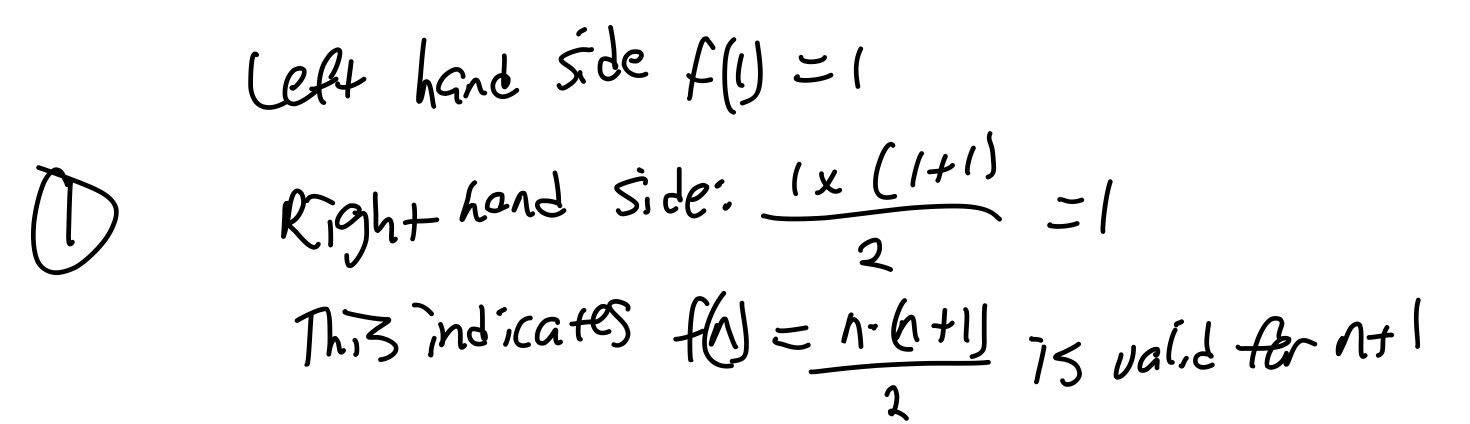 Left hand side f(1) = 1
① Right hand side: (1 x (1+1))/2 = 1
This indicates f(n) = (n·(n+1))/2 is valid for n+1